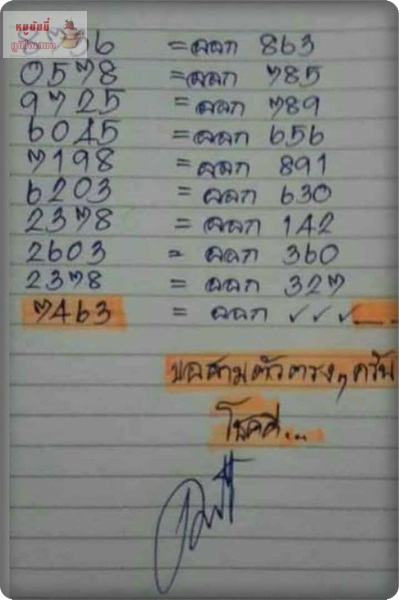 หมูมัยมี่
0578 = ออก 785
9725 = ออก 789
6045 = ออก 656
7198 = ออก 891
6203 = ออก 630
2378 = ออก 142
2603 = ออก 360
2378 = ออก 327
7463 = ออก ✓✓✓
ขอสามตัวตรงๆครับ
โชคดี...